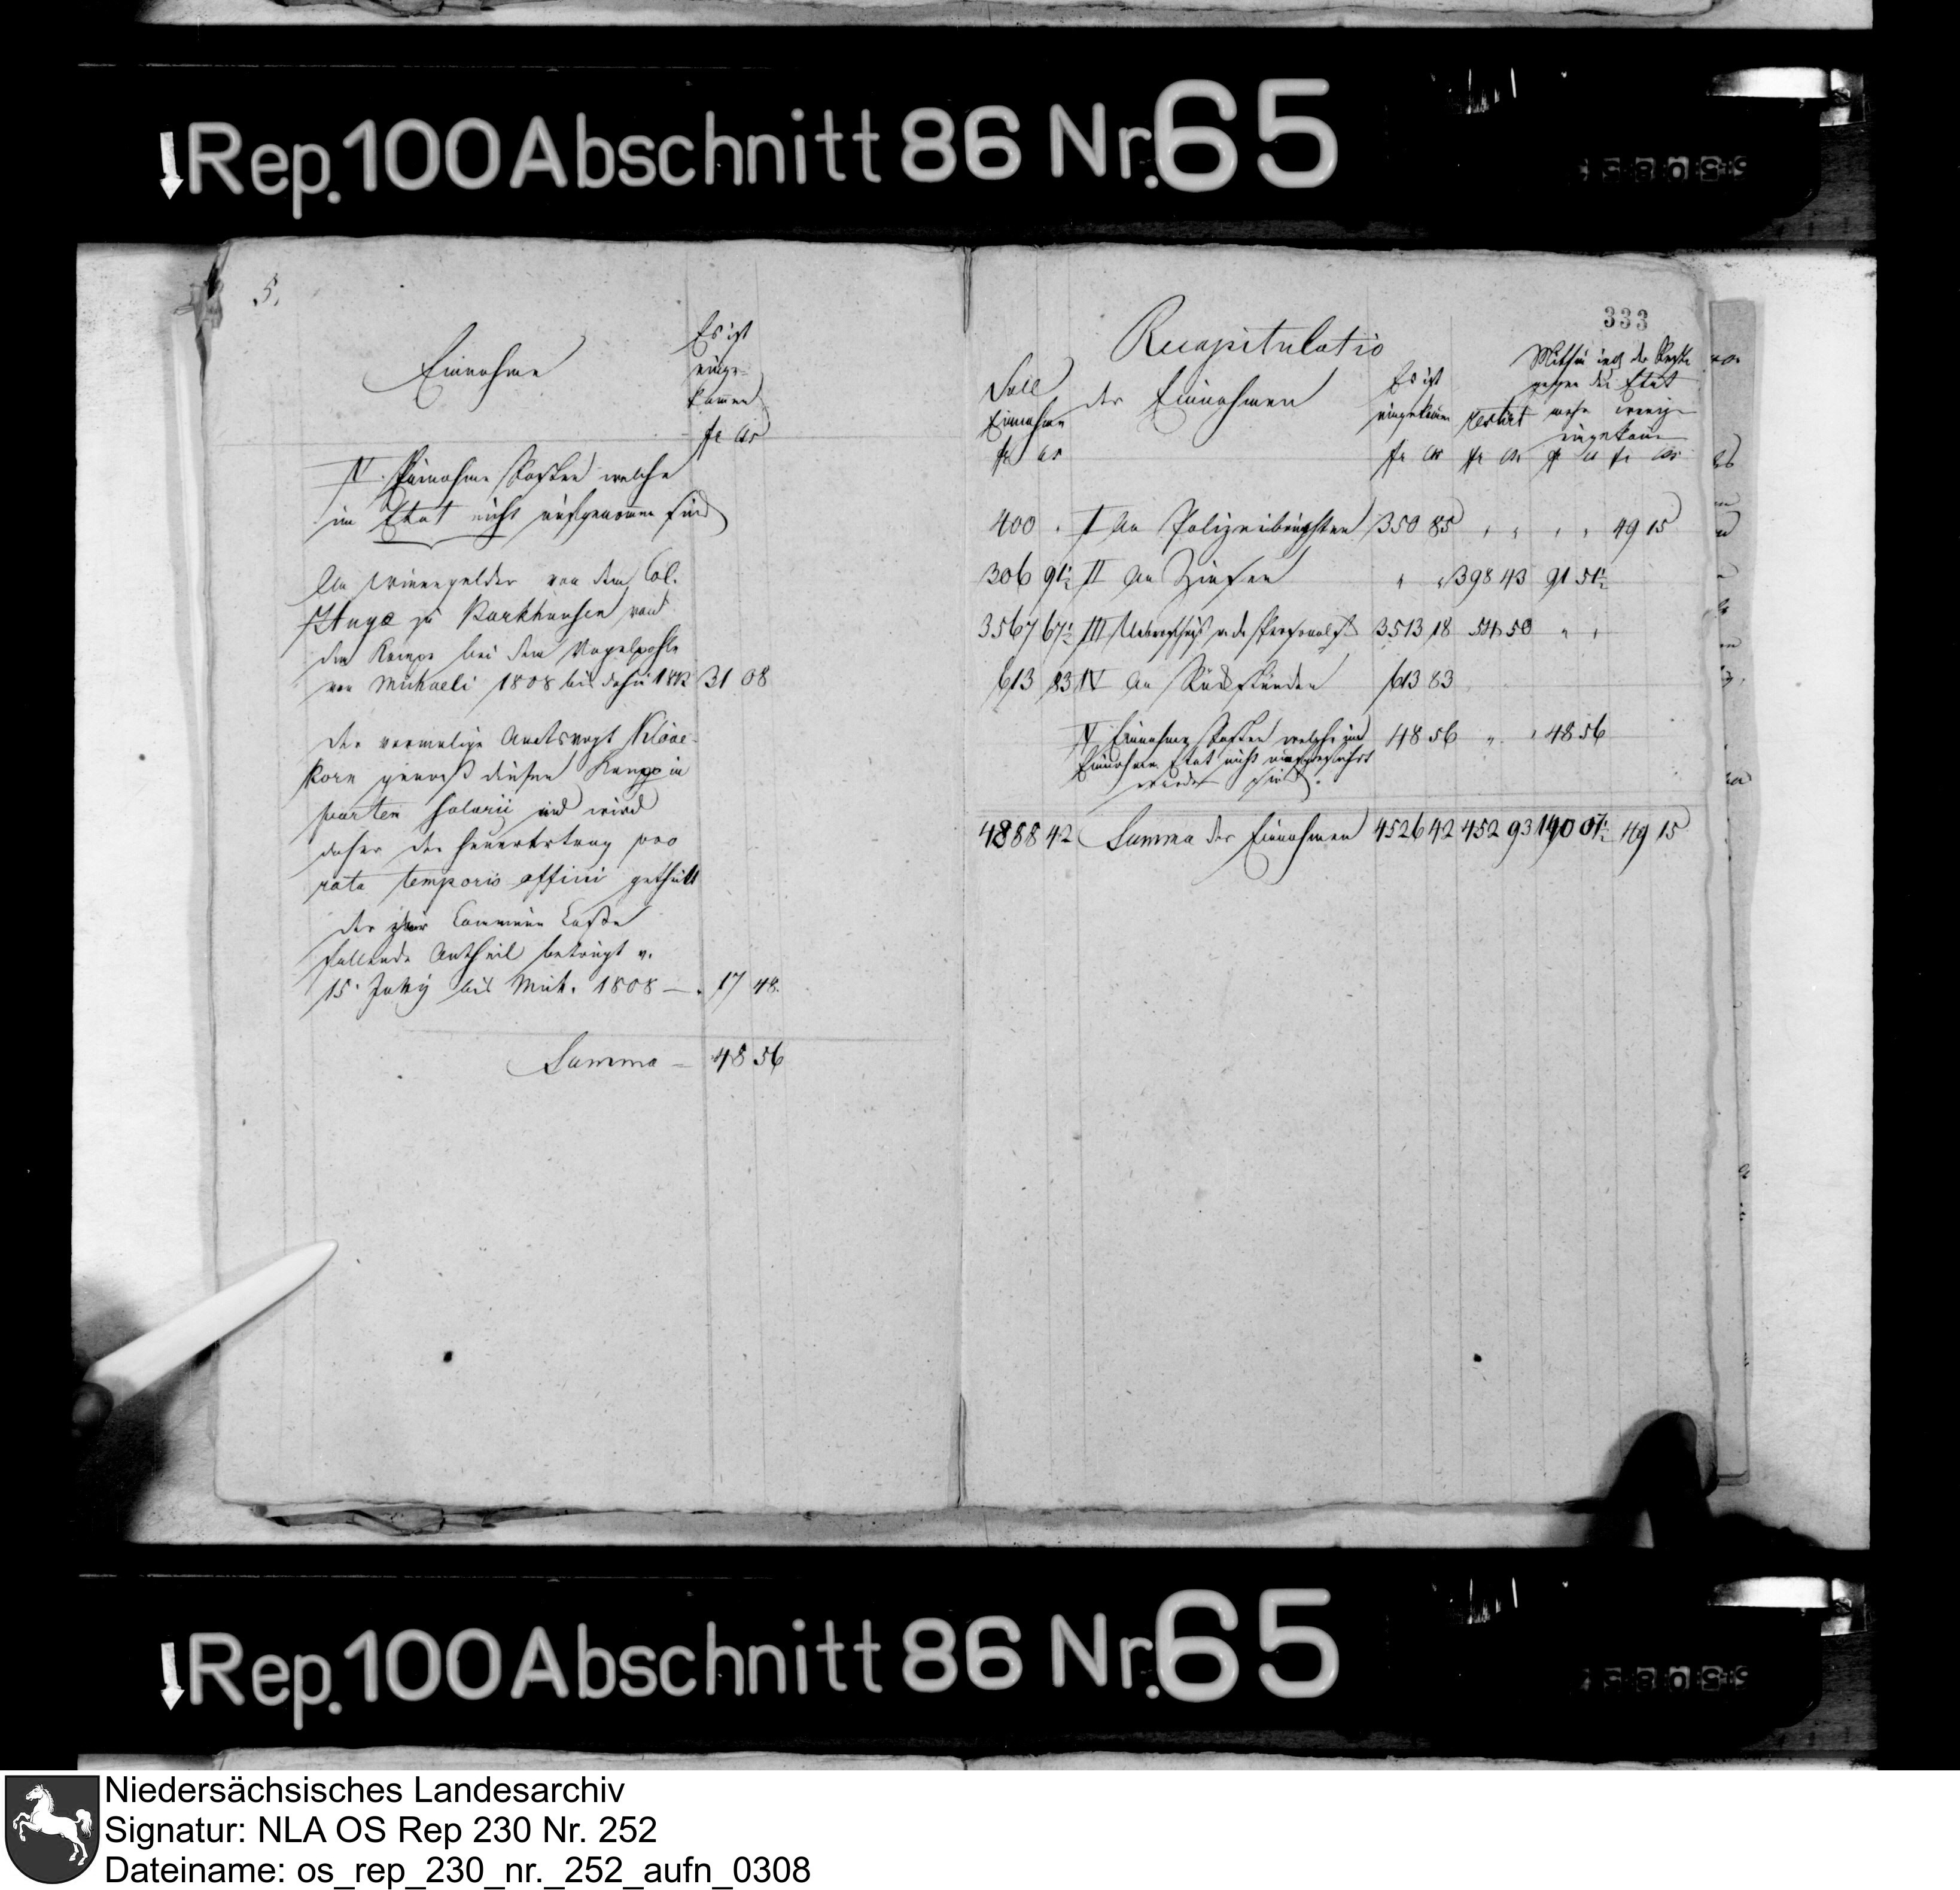 Rep. 100 Abschnitt 86 Nr. 65
5.
Einnahme
Es ist
einge-
kommen
fr Cs
IV. Einnahme Posten welche
im Etat nicht aufgenommen sind
An Winnegelder von dem Col.
zu Barkhausen von
dem Kampe bei dem Vogelpohle
von Michaeli 1808 bis dahin 1812 31 08
Der vormalige Amtsvogt Klöve-
korn genoß diesen Kamp in
partem salarii und wird
daher der Heuerertrag pro
rata temporis officii getheilt
der zur Commune Casse
fallende Antheil beträgt v.
15. July bis Mich. 1808 — 17 48.
Summa = 48 56
333
Recapitulatio
der Einnahmen
Soll
Einnahme
fr Cs
Es ist
eingekomm
fr Cs
restirt
fr Cs
Mithin incl. der Reste
gegen den Etat
mehr wenige
eingekom
fr Cs fr Cs
400 . I An Polizeibrüchten 350 85 " " " " 49 15
306 91½ II An Zinsen " " 398 43 91 51½
3567 67½ III 3513 18 54 50 " "
613 83 IV An Rückständen 613 83
V Einnahme Posten welche im
Einnahme Etat nicht aufgeführt
worden sind. 48 56 " " 48 56
4888 42 Summa der Einnahmen 4526 42 452 93 140 07½ 49 15
Rep. 100 Abschnitt 86 Nr. 65
Niedersächsisches Landesarchiv
Signatur: NLA OS Rep 230 Nr. 252
Dateiname: os_rep_230_nr._252_aufn_0308